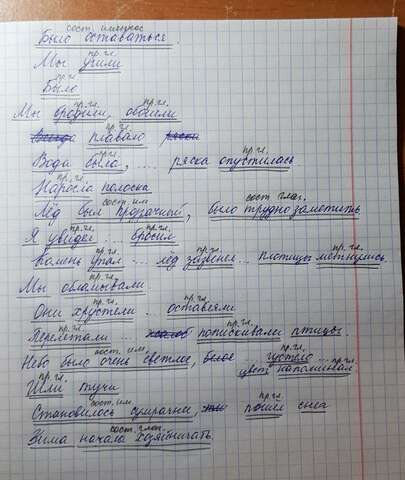 сост. именное
Было оставаться.
пр. гл.
Мы учили
пр. гл.
Было
пр. гл. пр. гл.
Мы бродили, обошли
пр. гл.
плавало ряска
пр. гл. пр. гл.
Вода была, ... ряска опустилась
пр. гл.
Наросла полоска
сост. им сост. глаг.
Лёд был прозрачный, было трудно заметить
пр. гл. пр. гл.
Я увидел ... бросил
пр. гл. пр. гл. пр. гл.
камень упал ... лёд зазвенел ... плотицы метнулись
пр. гл.
Мы обламывали
пр. гл. пр. гл.
Они хрустели ... оставляли
пр. гл. пр. гл.
Перелетали ... попискивали птицы
сост. им. пр. гл.
Небо было очень светлое, белое густело ...
пр. гл.
цвет напоминал
пр. гл.
Шли тучи
сост. им пр. гл.
Становилось сумрачнее, пошёл снег
сост. глаг.
Зима начала хозяйничать.